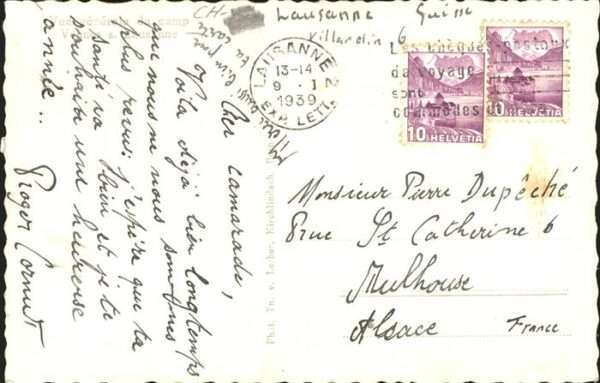 CH-
Lausanne Suisse
Villardin 6
LAUSANNE 2
13-14
9 . I
1939
EXP. LETT.
Les chèques postaux
de voyage
sont
commodes
10 HELVETIA
10 HELVETIA
Mille
ta
carte
Cher camarade,
Voilà déjà bien longtemps
que nous ne nous sommes
plus revus. j'espère que ta
santé va bien et je te
souhaite une heureuse
année..
Roger Cornut
Monsieur Pierre Dupêché
Rue St Catherine 6
Mulhouse
Alsace France